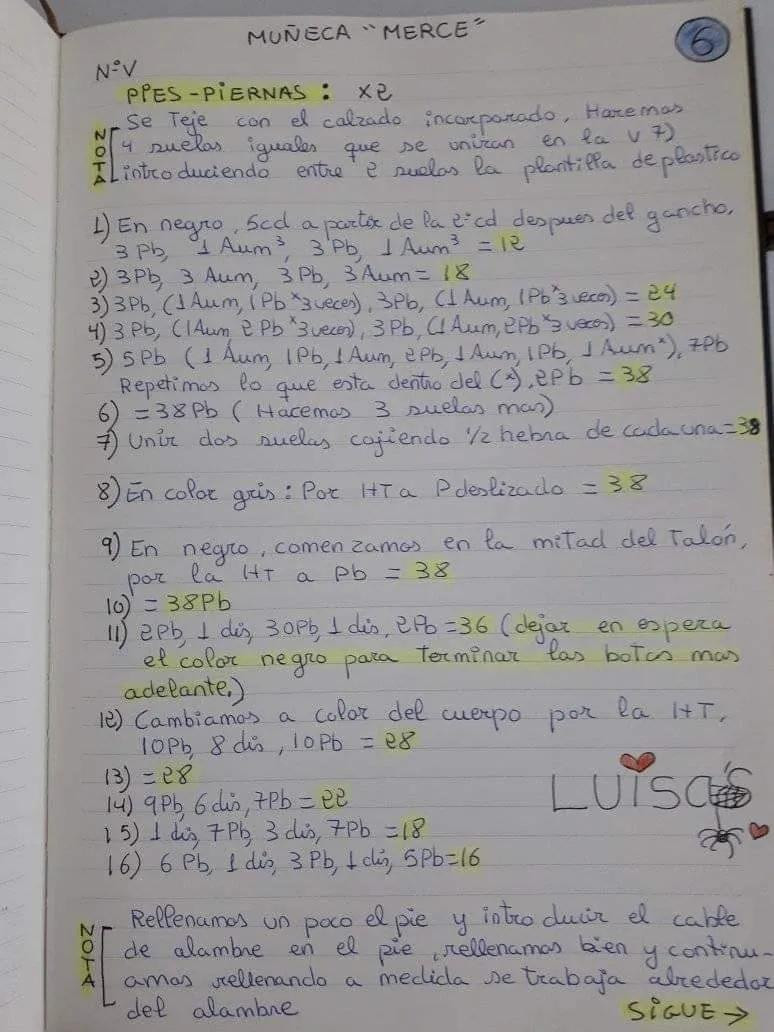 MUÑECA "MERCE"
6
NºV
PPES-PIERNAS: x2
NOTA
Se Teje con el calzado incorporado, Haremos
4 suelas iguales que se uniran en la v 7)
introduciendo entre 2 suelas la plantilla de plastico
1) En negro, 5cd a partir de la 2ºcd despues del gancho,
3 Pb, 1 Aum³, 3 Pb, 1 Aum³ = 12
2) 3Pb, 3 Aum, 3Pb, 3Aum = 18
3) 3Pb, (1Aum, 1Pb*3veces), 3Pb, (1Aum, 1Pb*3veces) = 24
4) 3 Pb, (1Aum, 2Pb*3veces), 3Pb, (1Aum, 2Pb*3veces) = 30
5) 5Pb (1 Aum, 1Pb, 1Aum, 2Pb, 1Aum, 1Pb, 1Aum*), 7Pb
Repetimos lo que esta dentro del (*), 2Pb = 38
6) = 38Pb (Hacemos 3 suelas mas)
7) Unir dos suelas cojiendo 1/2 hebra de cada una = 38
8) En color gris: Por HT a P deslizado = 38
9) En negro, comenzamos en la mitad del Talón,
por la HT a Pb = 38
10) = 38Pb
11) 2Pb, 1 dis, 30Pb, 1 dis, 2Pb = 36 (dejar en espera
el color negro para terminar las botas mas
adelante.)
12) Cambiamos a color del cuerpo por la HT,
10Pb, 8 dis, 10Pb = 28
13) = 28
14) 9Pb, 6 dis, 7Pb = 22
15) 1 dis, 7Pb, 3 dis, 7Pb = 18
16) 6 Pb, 1 dis, 3Pb, 1 dis, 5Pb = 16
LUISA'S
NOTA
Rellenamos un poco el pie y introducir el cable
de alambre en el pie, rellenamos bien y continu-
amos rellenando a medida se trabaja alrededor
del alambre
SIGUE →